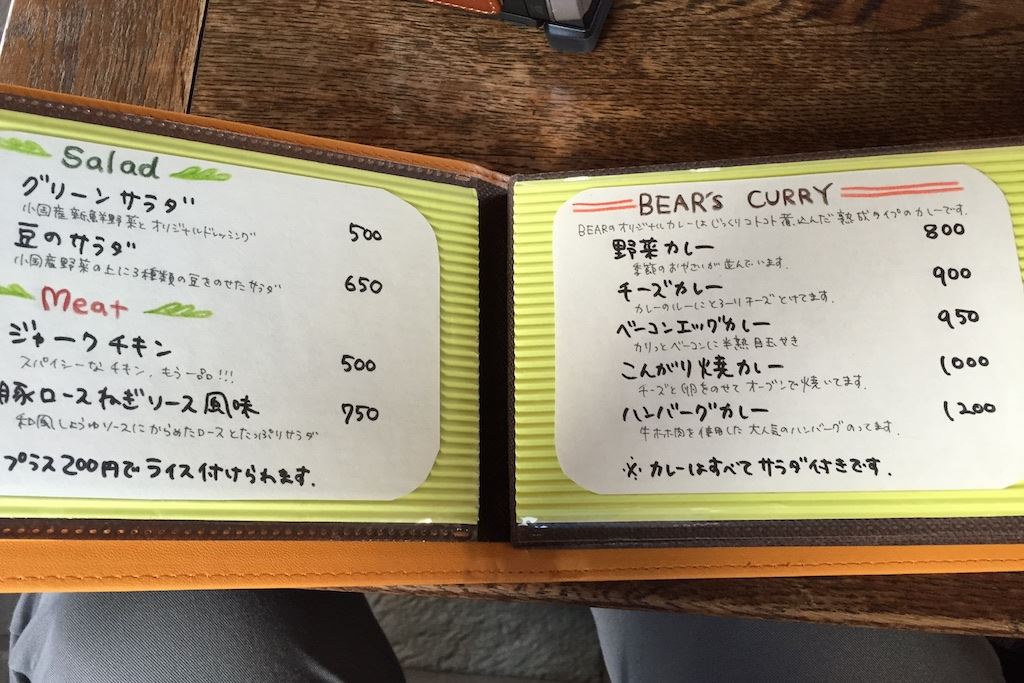 Salad
グリーンサラダ
小国産新鮮野菜とオリジナルドレッシング
500
豆のサラダ
小国産野菜の上に3種類の豆をのせたサラダ
650
Meat
ジャークチキン
スパイシーなチキン、もう一品!!!
500
豚ロースねぎソース風味
750
和風しょうゆソースにからめたロースとたっぷりサラダ
プラス200円でライス付けられます.
BEAR's CURRY
BEARのオリジナルカレーはじっくりコトコト煮込んだ熟成タイプのカレーです.
野菜カレー
800
季節のおやさいが並んでいます.
チーズカレー
900
カレーのルーにとろーりチーズとけてます.
ベーコンエッグカレー
950
カリっとベーコンに半熟目玉やき
こんがり焼カレー
1000
チーズと卵をのせてオーブンで焼いてます.
ハンバーグカレー
1200
牛ホホ肉を使用した大人気のハンバーグのってます.
※カレーはすべてサラダ付きです.